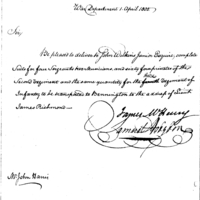 War Department 1 April 1800
Sir
Be pleased to deliver to John Wilkins Junior Esquire, complete
Suits for four Sergeants two Musicians, and sixty four privates of the
Second Regiment and the same quantity for the Regiment of
Infantry to be transported to Bennington to the care of Lieut
James Richmond.
James McHenry
Samuel
Mr John Harris